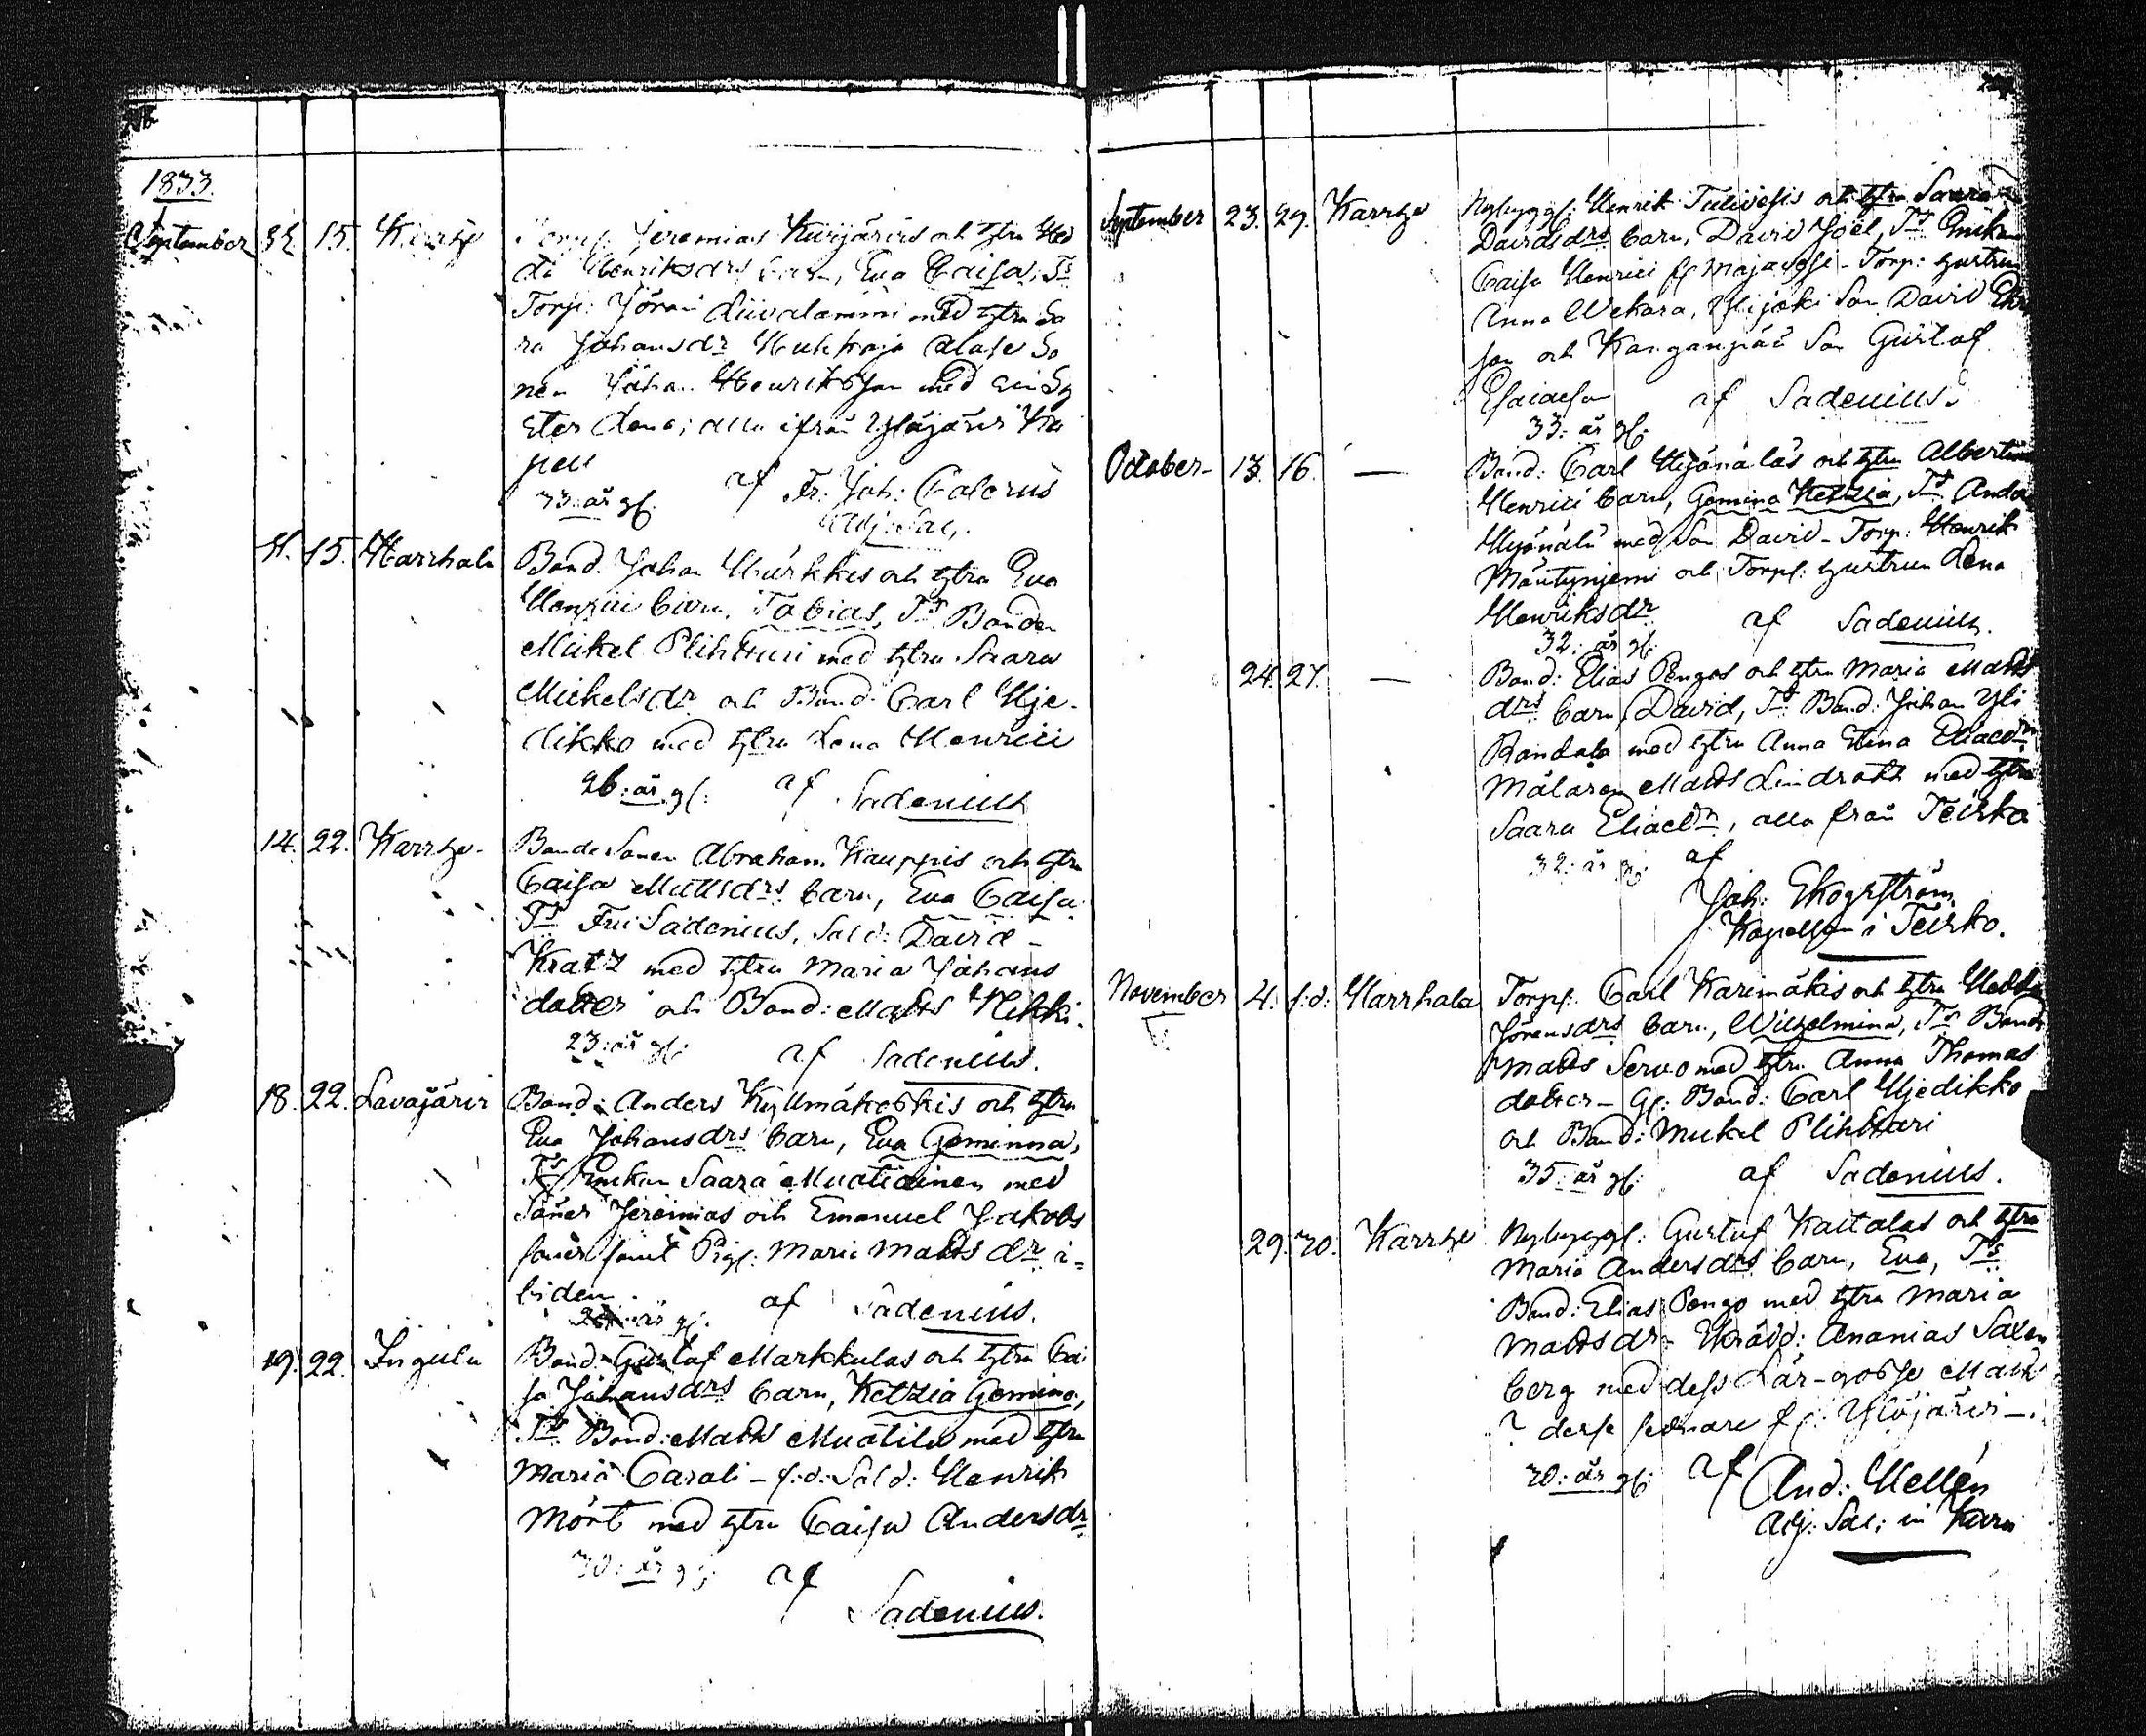 1833.
September 15. Karrhe
Jeremias Kurjärvis och hstru Hed
da Henriksdrs barn, Eva Caisa, Ts
Torp: Jöran Liivalammi med hstru Sa
ra Johansdr Alase So
nen Johan Henriksson med Sy
ster Lena; alla ifrån Ylöjärvi Ka
pell
33: år gl. af Fr. Joh: Calenus
Adj: Sac.
11. 15. Harrhala Bond. Johan Hurkkis och hstru Eva
Henrici barn, Tobias, Ts Bonden
Mickel Plihtari med hstru Saara
Mickelsdr och Bond. Carl Hje-
dikko med hstru Lena Henrici
26: år gl: af Sadenius
14. 22. Karrhe- BondeSonen Abraham Kauppis och hstru
Caisa Mattsdrs barn, Eva Caisa
Ts Fru Sadenius, Sald: David
Kratz med hstru Maria Johans
dotter och Bond: Matts Heikki.
23: år gl: af Sadenius.
18. 22. Lavajärvi Bond: Anders Kyllmäkoskis och hstru
Eva Johansdrs barn, Eva Gemina,
Ts Enkan Saara Muotiainen med
Söner Jeremias och Emanuel Jakobs
söner samt Pig: Maria Mattsdr i-
biden
år gl. af Sadenius.
19. 22. Ingula Bond: Gustaf Markkulas och hstru Cai
sa Johansdrs barn, Ketzia Gemina,
Ts Bond: Matts Muotila med hstru
Maria Caroli - f:d: Sald: Henrik
Mört med hstru Caisa Andersdr
30: år gl: af
Sadenius.
September 23. 29. Karrhe Nybyggf: Henrik och hstru Saara
Davidsdrs barn, David Joël, Ts Enkan
Caisa Henrici - Torp: hustrun
Anna Wekara, Ylijoki Son David
son och Kangaspää Son Gustaf
Esaiasson af Sadenius.
33: år gl:
October- 13. 16. — Bond: Carl Hyönäläs och hstru Albertina
Henrici barn, Gemina Ketzia, Ts
Hyönälä med Son David - Torp: Henrik
Mäntyniemi och Torpf: hustrun Lena
Henriksdr af Sadenius.
32: år gl:
24. 27. — Bond: Elias Pengos och hstru Maria Matts
drs barn, David, Ts Bond: Johan Yli
Randala med hstru Anna Stina Eliaedr
Målaren Matts Lindroth med hstru
Saara Eliaedr, alla från Teisko
32: år gl: af
Joh: Skogström,
Kapellan i Teisko.
November 4. f:d: Harrhala Torpf: Carl Karimäkis och hstru Hedda
Jöransdrs barn, Wilhelmina, Ts Bond
Matts Servo med hstru Anna Thomas
dotter - Gf: Bond: Carl Hjedikko
och Bond: Mickel Plihtari
35: år gl: af Sadenius.
29. 30. Karrhe Nybyggf: Gustaf Kaitalas och hstru
Maria Andersdrs barn, Eva, Ts
Bond: Elias Pengo med hstru Maria
Mattsdr - Skrädd: Ananias Saxen
berg med dess Lär-gosse Matts
? desse sednare fr: Ylöjärvi -.
30: år gl: af And: Hellén
Adj: Sac: in Karu